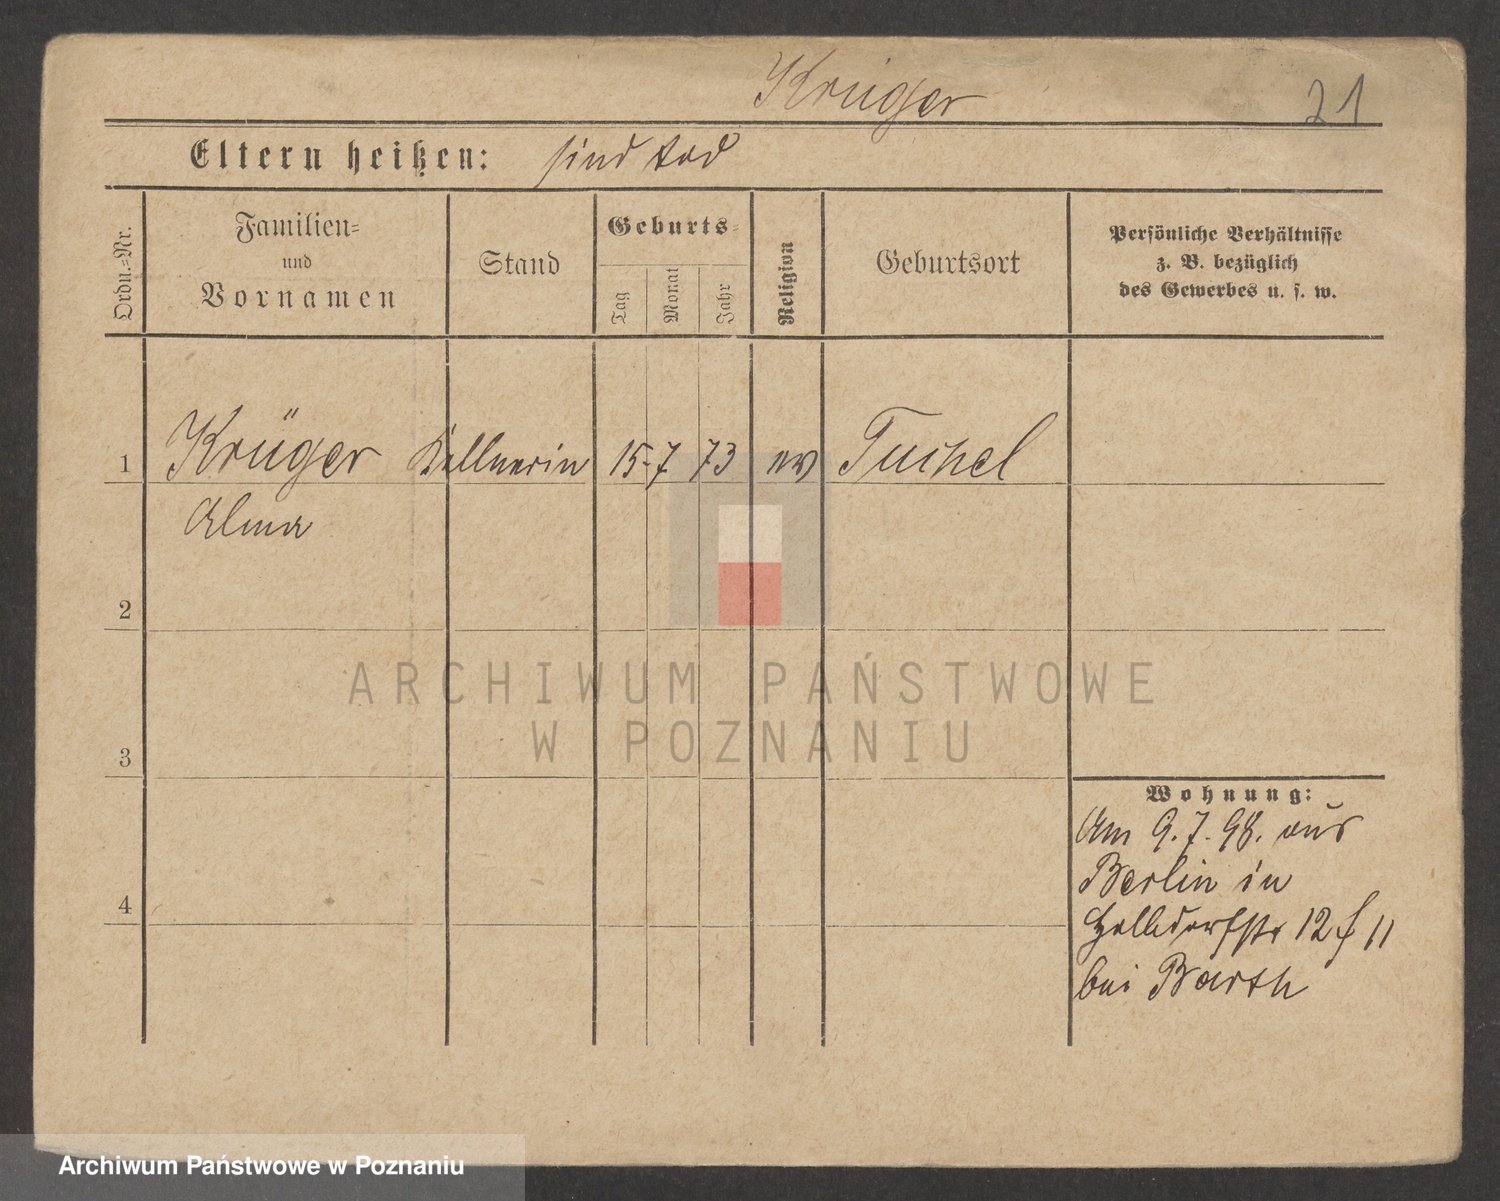 Krüger
21
Eltern heißen: sind tod
Ordn.-Nr.
Familien-
und
Vornamen
Stand
Geburts-
Tag
Monat
Jahr
Religion
Geburtsort
Persönliche Verhältnisse
z. B. bezüglich
des Gewerbes u. s. w.
1 Krüger Kellnerin 15. 7 73 ev Tuchel
Alma
2
3
4
Wohnung:
Am 9. 7. 98. aus
Berlin in
12 11
bei Barth
ARCHIWUM PAŃSTWOWE
W POZNANIU
Archiwum Państwowe w Poznaniu